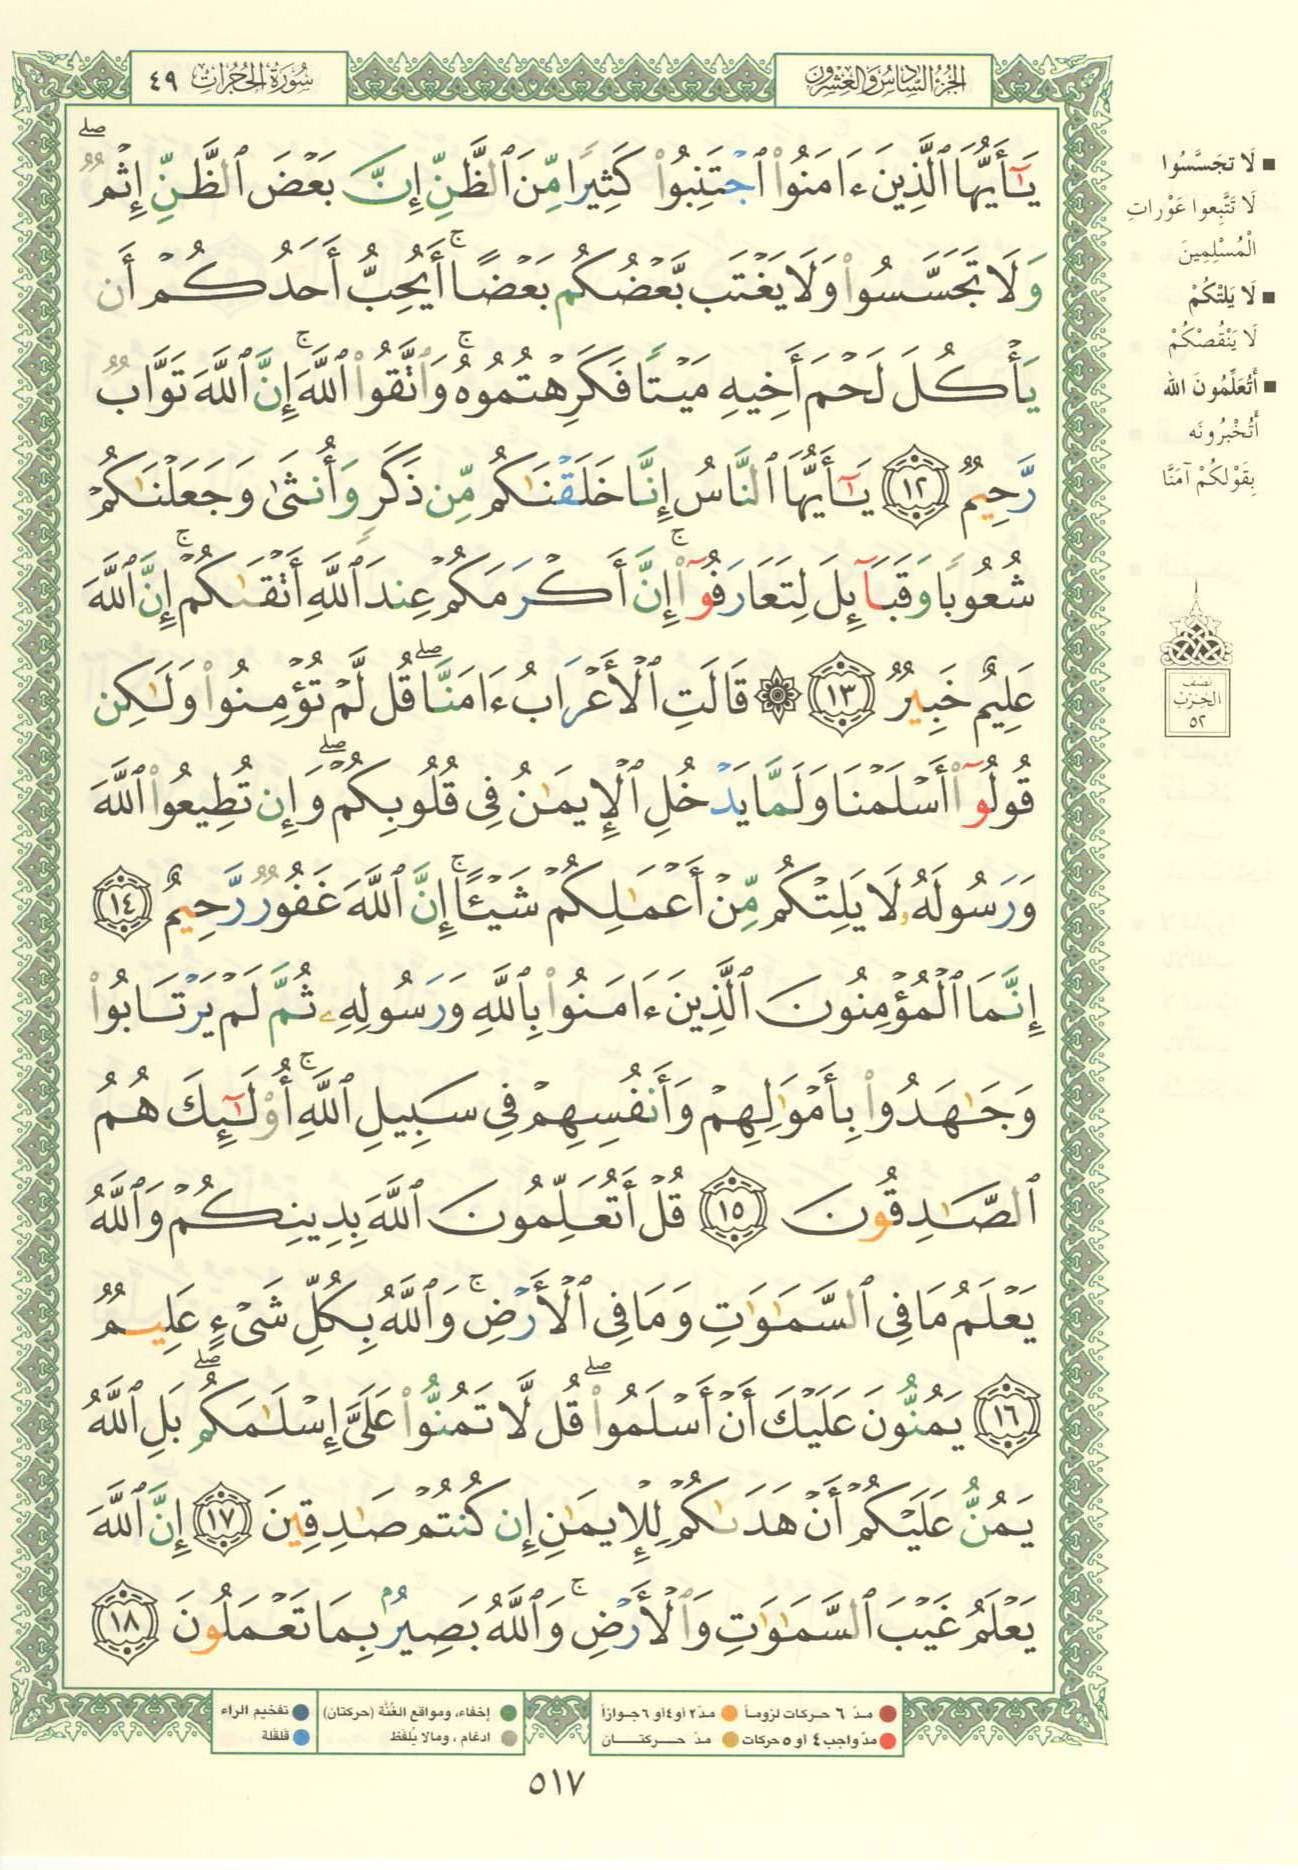 الجزء السادس والعشرون
سورة الحجرات ٤٩
يَٰٓأَيُّهَا ٱلَّذِينَ ءَامَنُوا۟ ٱجْتَنِبُوا۟ كَثِيرًا مِّنَ ٱلظَّنِّ إِنَّ بَعْضَ ٱلظَّنِّ إِثْمٌ ۖ
وَلَا تَجَسَّسُوا۟ وَلَا يَغْتَب بَّعْضُكُم بَعْضًا ۚ أَيُحِبُّ أَحَدُكُمْ أَن
يَأْكُلَ لَحْمَ أَخِيهِ مَيْتًا فَكَرِهْتُمُوهُ ۚ وَٱتَّقُوا۟ ٱللَّهَ ۚ إِنَّ ٱللَّهَ تَوَّابٌ
رَّحِيمٌ ١٢ يَٰٓأَيُّهَا ٱلنَّاسُ إِنَّا خَلَقْنَٰكُم مِّن ذَكَرٍ وَأُنثَىٰ وَجَعَلْنَٰكُمْ
شُعُوبًا وَقَبَآئِلَ لِتَعَارَفُوٓا۟ ۚ إِنَّ أَكْرَمَكُمْ عِندَ ٱللَّهِ أَتْقَىٰكُمْ ۚ إِنَّ ٱللَّهَ
عَلِيمٌ خَبِيرٌ ١٣ ۞ قَالَتِ ٱلْأَعْرَابُ ءَامَنَّا ۖ قُل لَّمْ تُؤْمِنُوا۟ وَلَٰكِن
قُولُوٓا۟ أَسْلَمْنَا وَلَمَّا يَدْخُلِ ٱلْإِيمَٰنُ فِى قُلُوبِكُمْ ۖ وَإِن تُطِيعُوا۟ ٱللَّهَ
وَرَسُولَهُۥ لَا يَلِتْكُم مِّنْ أَعْمَٰلِكُمْ شَيْـًٔا ۚ إِنَّ ٱللَّهَ غَفُورٌ رَّحِيمٌ ١٤
إِنَّمَا ٱلْمُؤْمِنُونَ ٱلَّذِينَ ءَامَنُوا۟ بِٱللَّهِ وَرَسُولِهِۦ ثُمَّ لَمْ يَرْتَابُوا۟
وَجَٰهَدُوا۟ بِأَمْوَٰلِهِمْ وَأَنفُسِهِمْ فِى سَبِيلِ ٱللَّهِ ۚ أُو۟لَٰٓئِكَ هُمُ
ٱلصَّٰدِقُونَ ١٥ قُلْ أَتُعَلِّمُونَ ٱللَّهَ بِدِينِكُمْ وَٱللَّهُ
يَعْلَمُ مَا فِى ٱلسَّمَٰوَٰتِ وَمَا فِى ٱلْأَرْضِ ۚ وَٱللَّهُ بِكُلِّ شَىْءٍ عَلِيمٌ
١٦ يَمُنُّونَ عَلَيْكَ أَنْ أَسْلَمُوا۟ ۖ قُل لَّا تَمُنُّوا۟ عَلَىَّ إِسْلَٰمَكُم ۖ بَلِ ٱللَّهُ
يَمُنُّ عَلَيْكُمْ أَنْ هَدَىٰكُمْ لِلْإِيمَٰنِ إِن كُنتُمْ صَٰدِقِينَ ١٧ إِنَّ ٱللَّهَ
يَعْلَمُ غَيْبَ ٱلسَّمَٰوَٰتِ وَٱلْأَرْضِ ۚ وَٱللَّهُ بَصِيرٌۢ بِمَا تَعْمَلُونَ ١٨
■ لَا تَجَسَّسُوا
لَا تَتَّبِعوا عَوْراتِ
الْمُسْلِمِينَ
■ لَا يَلِتْكُمْ
لَا يَنْقُصْكُمْ
■ أَتُعَلِّمُونَ الله
أَتُخْبِرُونَه
بِقَوْلِكُمْ آمَنَّا
نصف
الحزب
٥٢
مدّ ٦ حركات لزوماً
مدّ ٢ أو ٤ أو ٦ جوازاً
إخفاء، ومواقع الغُنَّة (حركتان)
تفخيم الراء
مدّ واجب ٤ أو ٥ حركات
مدّ حــركتــان
ادغام ، ومالا يُلفَظ
قلقلة
٥١٧